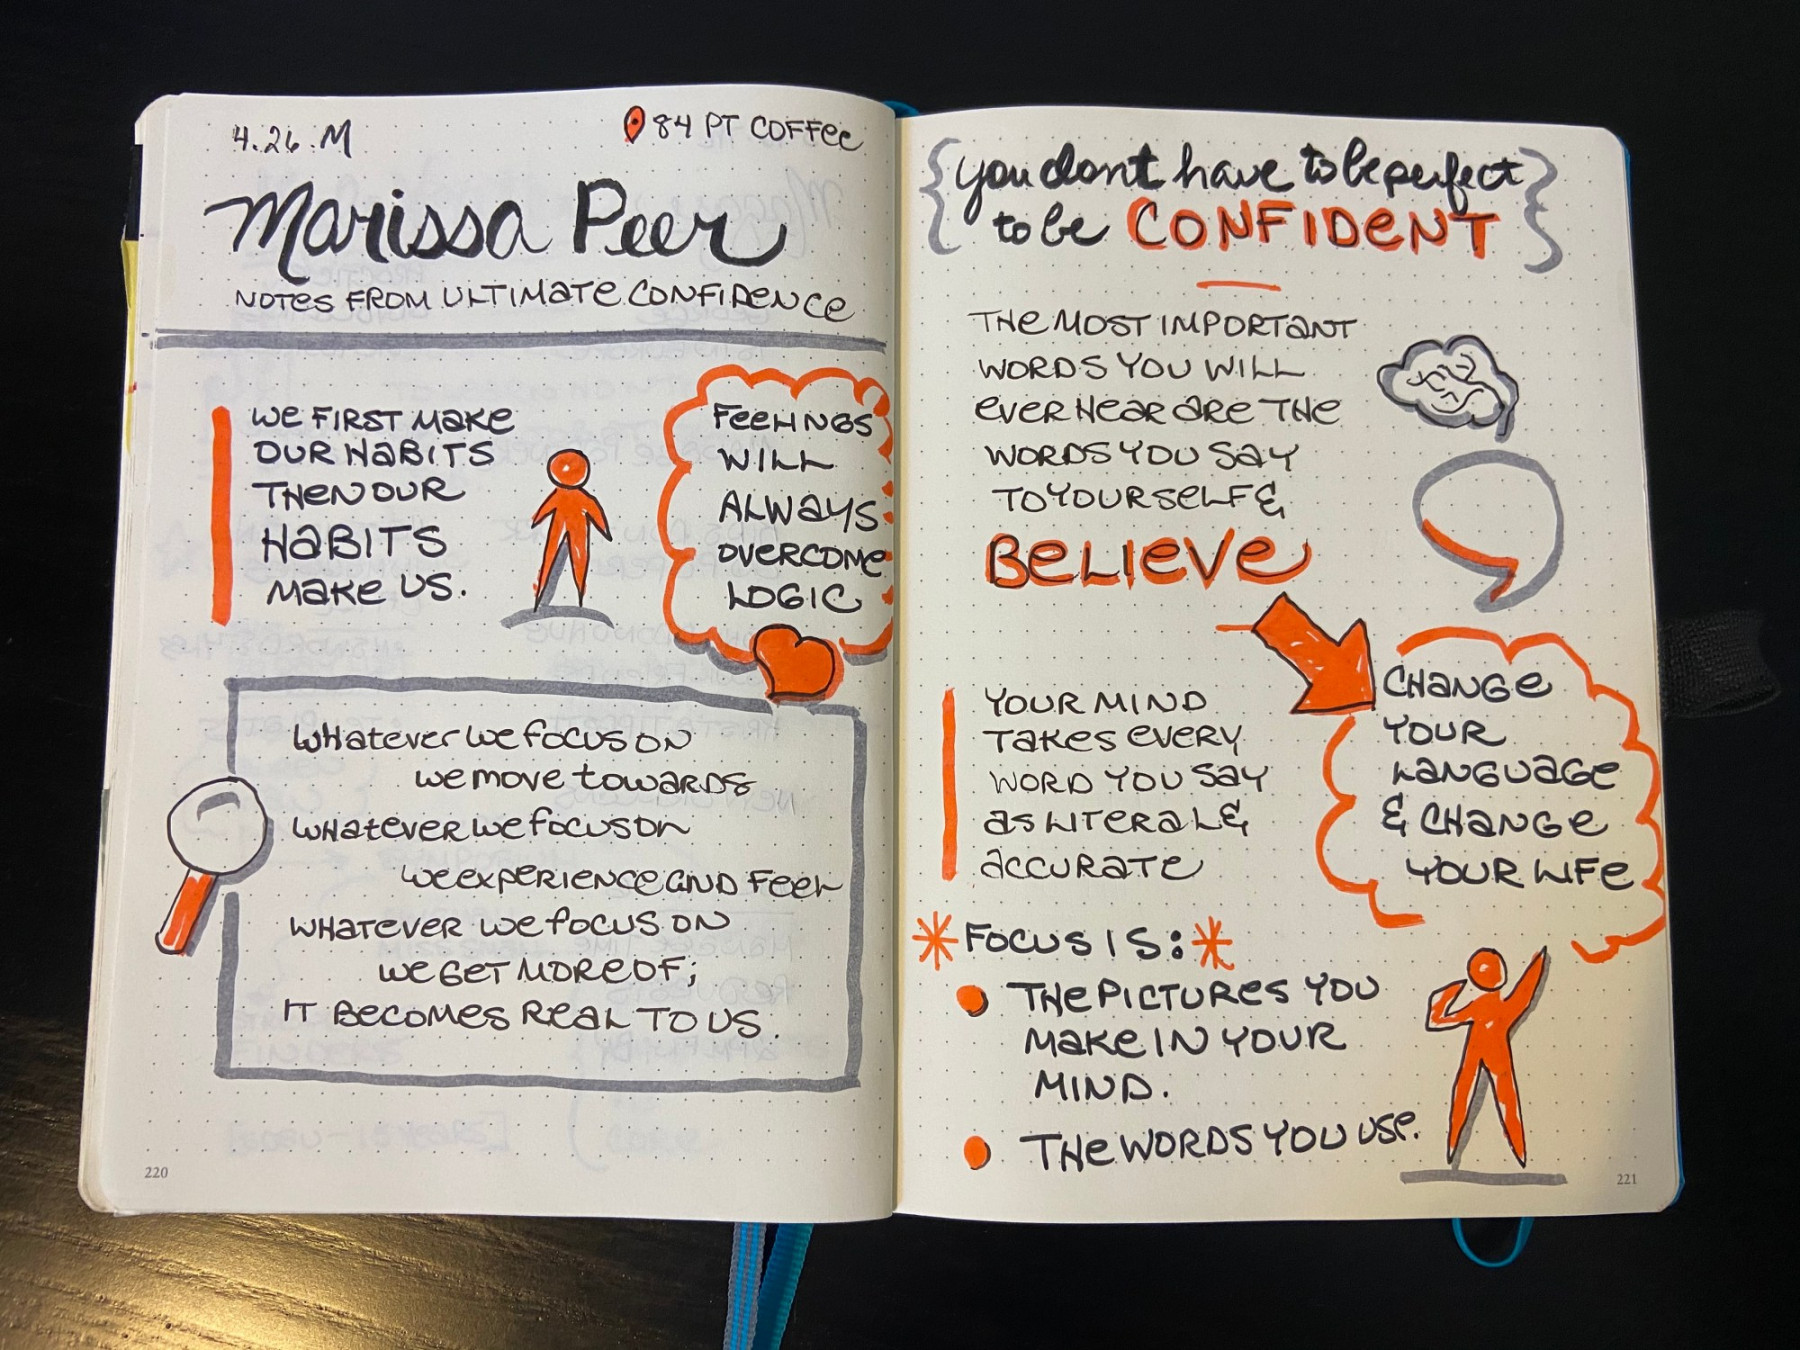 4.26.M
84 PT COFFee
Marissa Peer
NOTES FROM ULTIMATE CONFIDENCE
We FIRST MAKE
OUR HABITS
THEN OUR
HABITS
MAKE US.
FEELINGS
WILL
ALWAYS
OVERCOME
LOGIC
WHATEVER WE FOCUS ON
WE MOVE TOWARDS
WHATEVER WE FOCUS ON
WE EXPERIENCE AND FEEL
WHATEVER WE FOCUS ON
WE GET MORE OF;
IT BECOMES REAL TO US.
220
{you don't have to be perfect
to be CONFIDENT}
THE MOST IMPORTANT
WORDS YOU WILL
EVER HEAR ARE THE
WORDS YOU SAY
TO YOURSELF &
BELIEVE
YOUR MIND
TAKES EVERY
WORD YOU SAY
AS LITERAL &
ACCURATE
CHANGE
YOUR
LANGUAGE
& CHANGE
YOUR LIFE
* FOCUS IS: *
• THE PICTURES YOU
MAKE IN YOUR
MIND.
• THE WORDS YOU USE.
221